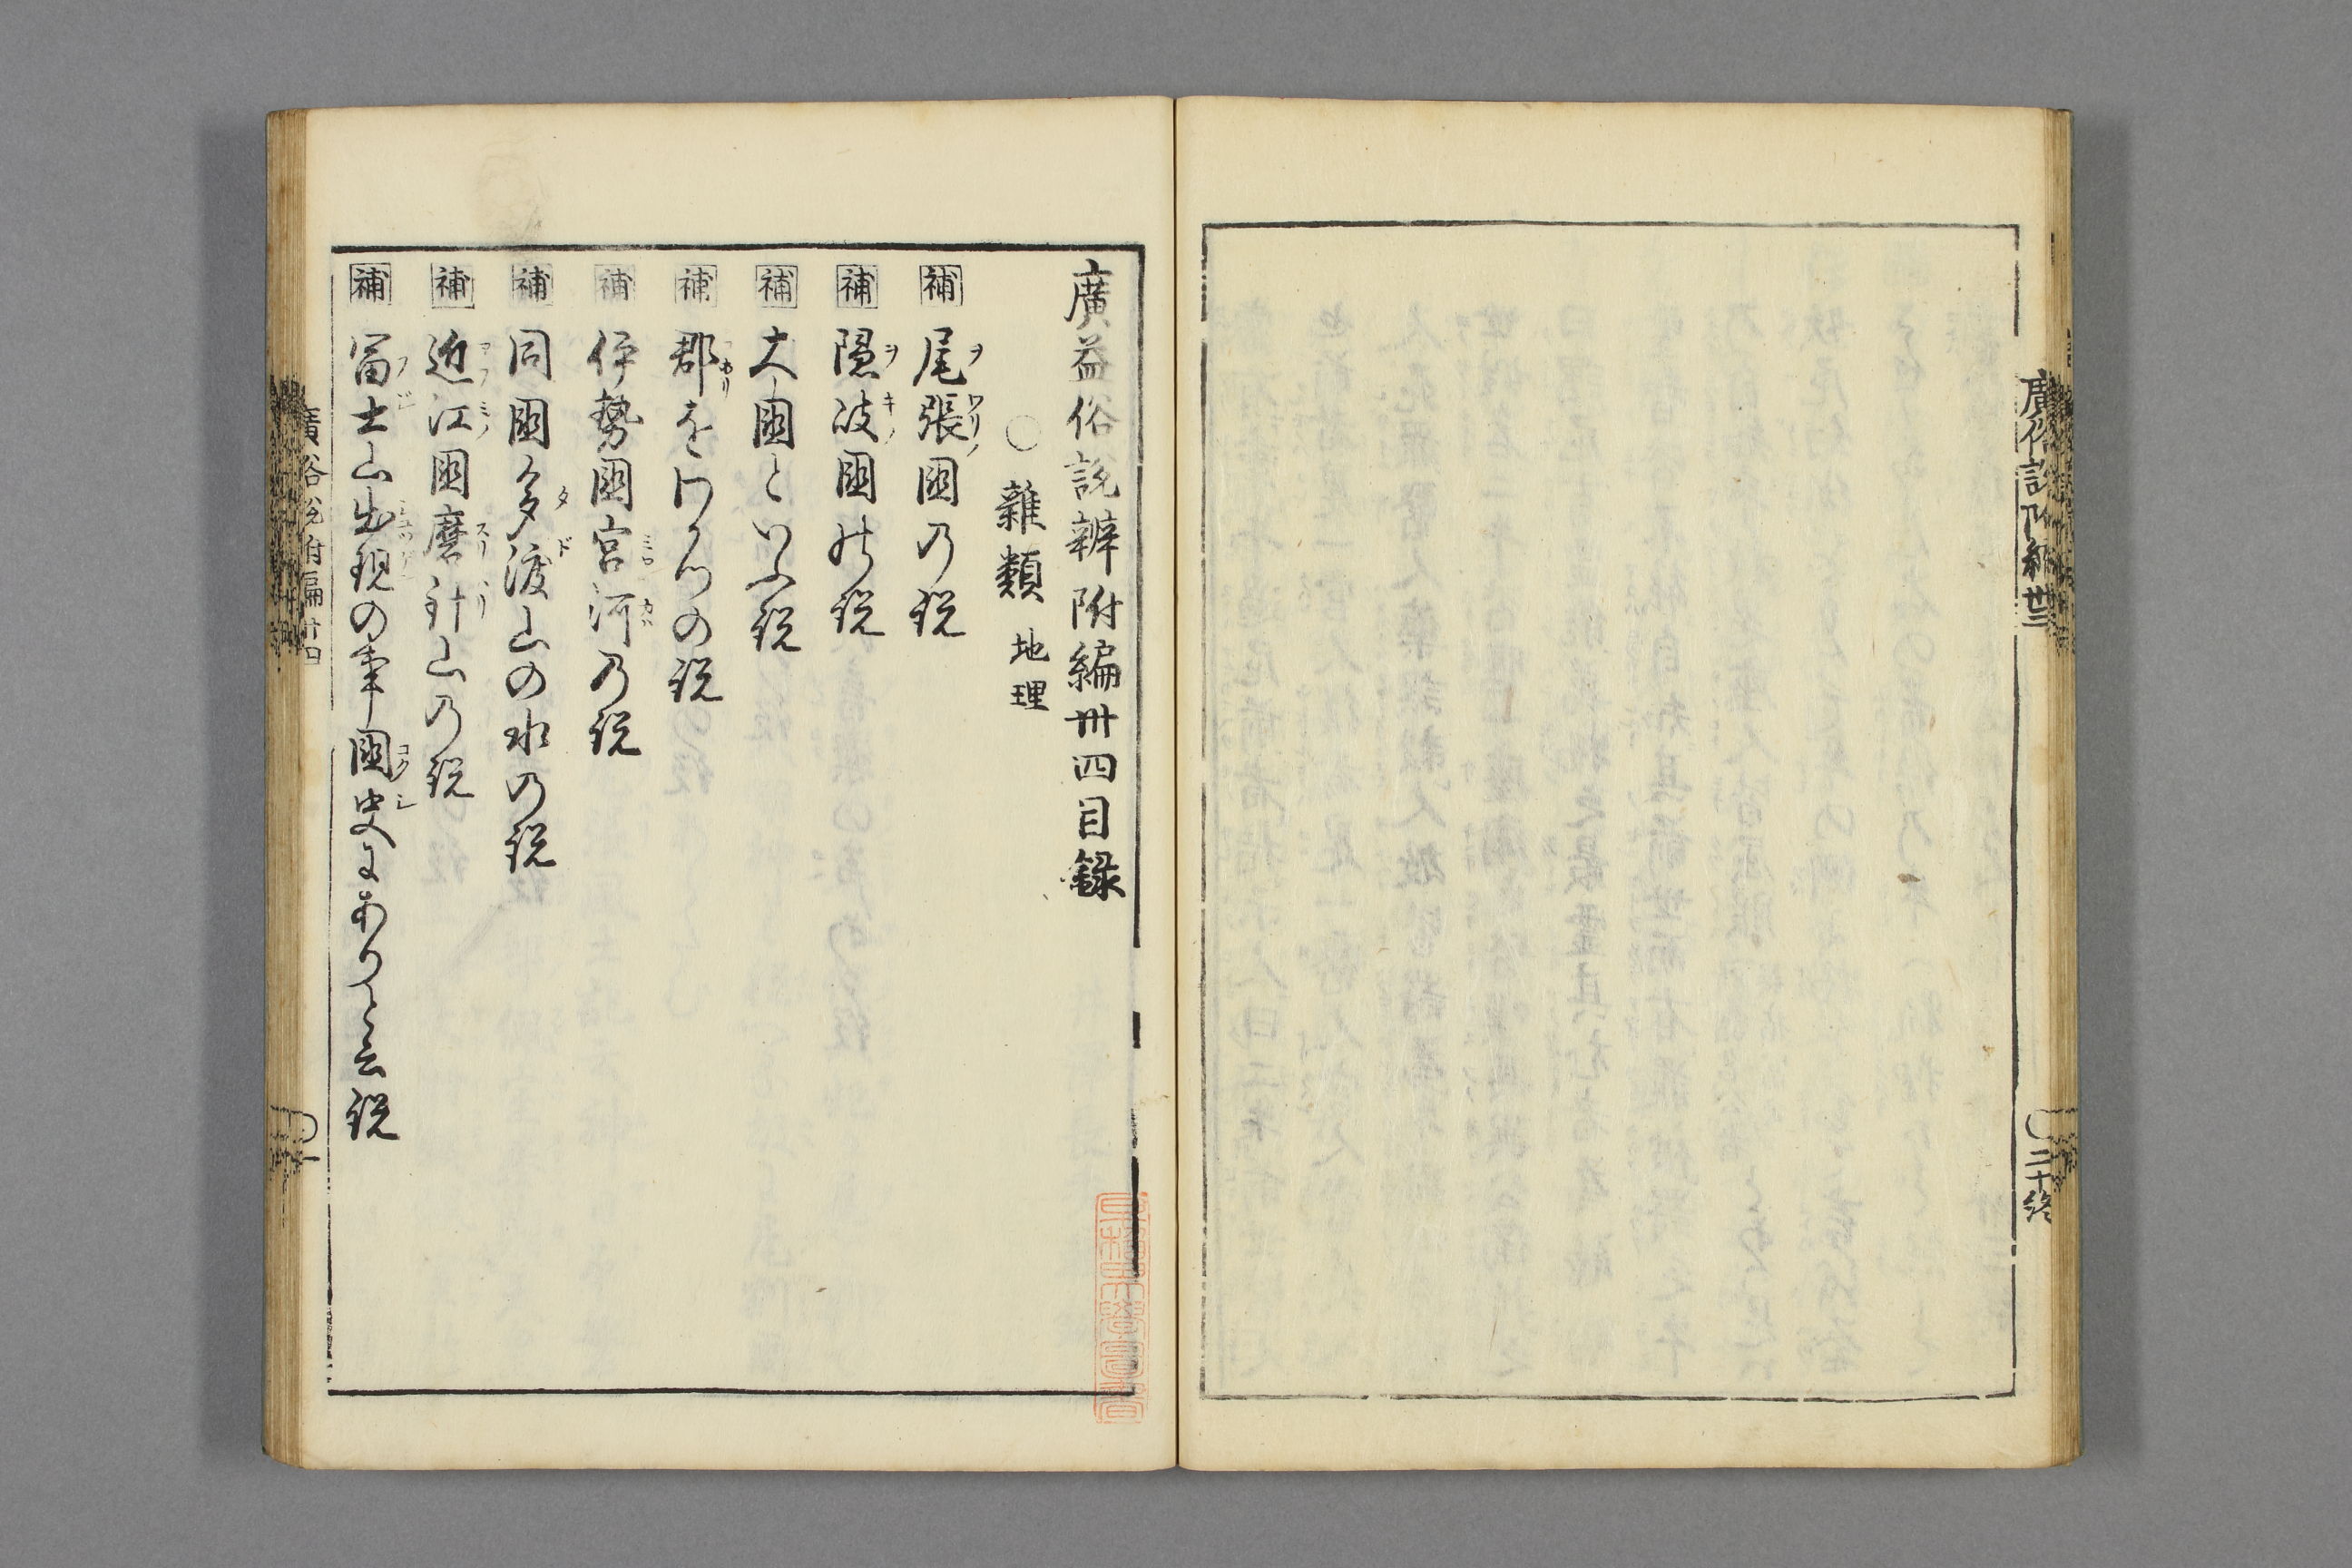 廣俗説附編卅三
〇二十終
廣益俗説辨附編卅四目録
〇雜類 地理
補 尾張國乃説
補 隠岐國の説
補 大國といふ説
補 郡をわかつの説
補 伊勢國宮河乃説
補 同國多渡山の水の説
補 近江國磨針山乃説
補 富士山出現の事國史にありと云説
廣俗説附編卅四
〇一